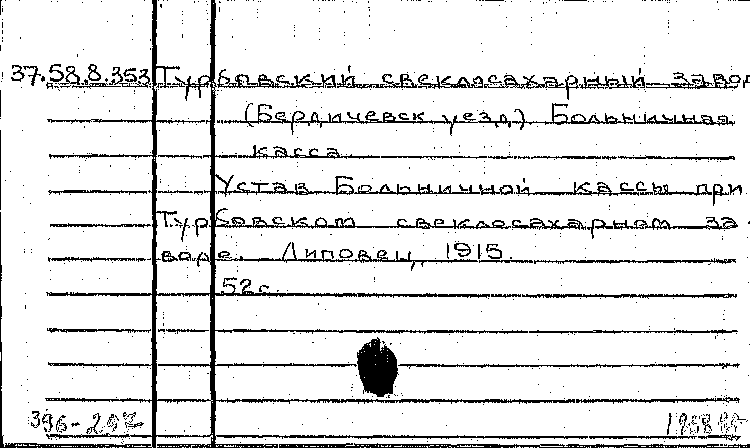 37.58.8.353 Турбовский свеклосахарный завод
(Бердичевск уезд) Больничная
касса
Устав Больничной кассы при
Турбовском свеклосахарном за-
воде. Липовец, 1915.
52с.
396-297